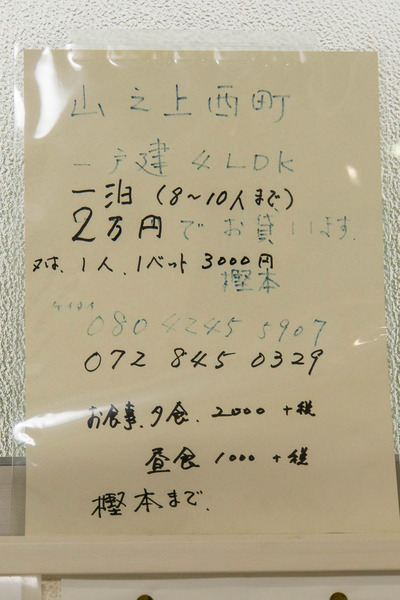 山之上西町
一戸建 4LDK
一泊 (8〜10人まで)
2万円でお貸します.
又は、1人、1ベット 3000円
樫本
ケイタイ
080 4245 5907
072 845 0329
お食事、夕食、2000 +税
昼食 1000 +税
樫本まで.